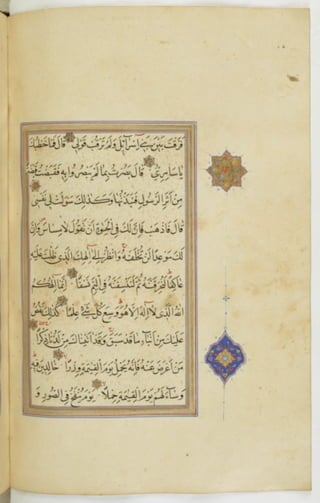 فَرَّقْتَ بَيْنَ بَنِي إِسْرَآئِيلَ وَلَمْ تَرْقُبْ قَوْلِي قَالَ فَمَا خَطْبُكَ
يَا سَامِرِيُّ قَالَ بَصُرْتُ بِمَا لَمْ يَبْصُرُوا بِهِ فَقَبَضْتُ قَبْضَةً
مِنْ أَثَرِ الرَّسُولِ فَنَبَذْتُهَا وَكَذَلِكَ سَوَّلَتْ لِي نَفْسِي
قَالَ فَاذْهَبْ فَإِنَّ لَكَ فِي الْحَيٰوةِ أَنْ تَقُولَ لَا مِسَاسَ وَإِنَّ
لَكَ مَوْعِدًا لَنْ تُخْلَفَهُ وَانْظُرْ إِلَى إِلَهِكَ الَّذِي ظَلْتَ عَلَيْهِ
عَاكِفًا لَنُحَرِّقَنَّهُ ثُمَّ لَنَنْسِفَنَّهُ فِي الْيَمِّ نَسْفًا إِنَّمَا إِلَهُكُمُ
اللَّهُ الَّذِي لَا إِلَهَ إِلَّا هُوَ وَسِعَ كُلَّ شَيْءٍ عِلْمًا كَذَلِكَ نَقُصُّ
عَلَيْكَ مِنْ أَنْبَآءِ مَا قَدْ سَبَقَ وَقَدْ آتَيْنَاكَ مِنْ لَدُنَّا ذِكْرًا
مَنْ أَعْرَضَ عَنْهُ فَإِنَّهُ يَحْمِلُ يَوْمَ الْقِيٰمَةِ وِزْرًا خَالِدِينَ فِيهِ
وَسَآءَ لَهُمْ يَوْمَ الْقِيٰمَةِ حِمْلًا يَوْمَ يُنْفَخُ فِي الصُّورِ وَ